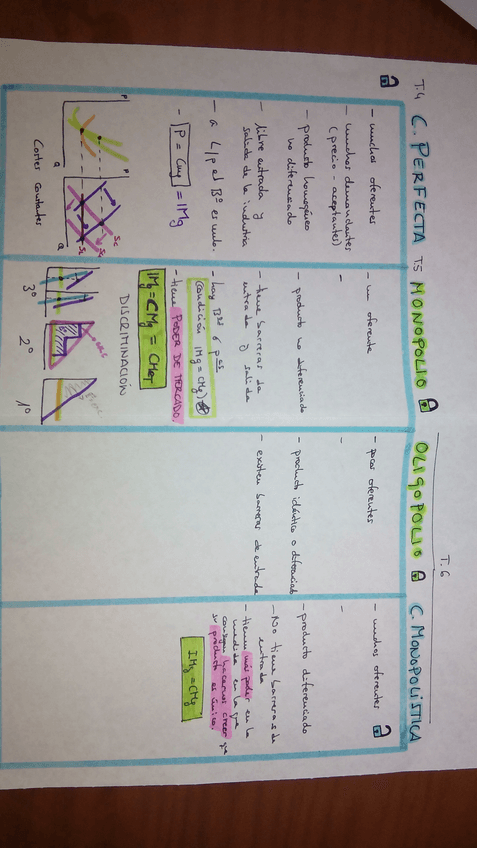 T.4 C. PERFECTA
- muchos oferentes
- muchos demandantes
(precio-aceptantes)
- producto homogéneo
no diferenciado
- libre entrada y
salida de la industria
- a L/p el Bº es nulo.
- P = CMg = IMg
P
P
Q
Q
Costes constantes
T5 MONOPOLIO
- un oferente
-
- producto no diferenciado
- tiene barreras de
entrada y salida
- hay Bº ó
(condición IMg = CMg)
- tiene PODER DE MERCADO.
IMg = CMg =
DISCRIMINACIÓN
3º
2º
1º
T.6
OLIGOPOLIO
- pocos oferentes
-
- producto idéntico o diferenciado
- existen barreras de entrada
C. MONOPOLÍSTICA
- muchos oferentes
-
- producto diferenciado
- No tiene barreras de
entrada
- tienen más poder en la
medida en la que
consiguen hacernos creer que
su producto es único.
IMg = CMg